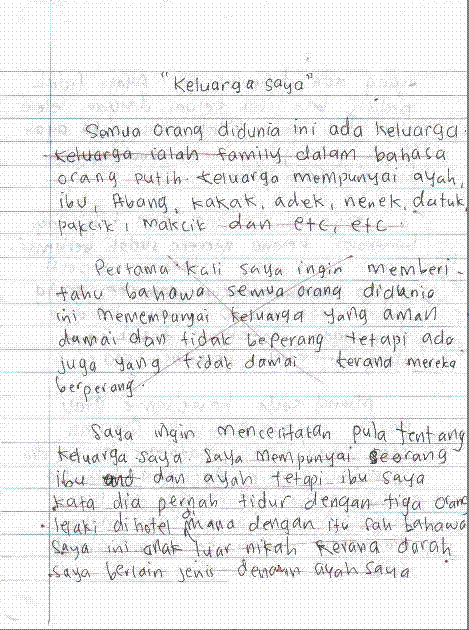 "Keluarga saya"
Semua orang didunia ini ada keluarga.
keluarga ialah family dalam bahasa
orang putih. keluarga mempunyai ayah,
ibu, Abang, kakak, adek, nenek, datuk,
pakcik, makcik dan etc, etc.
Pertama kali saya ingin memberi-
tahu bahawa semua orang didunia
ini memempunyai keluarga yang aman
damai dan tidak beperang tetapi ada
juga yang tidak damai kerana mereka
berperang.
Saya ingin menceritakan pula tentang
keluarga saya. Saya mempunyai seorang
ibu dan ayah tetapi ibu saya
kata dia pernah tidur dengan tiga orang
lelaki dihotel dimana dengan itu sah bahawa
saya ini anak luar nikah kerana darah
saya berlain jenis dengan ayah saya